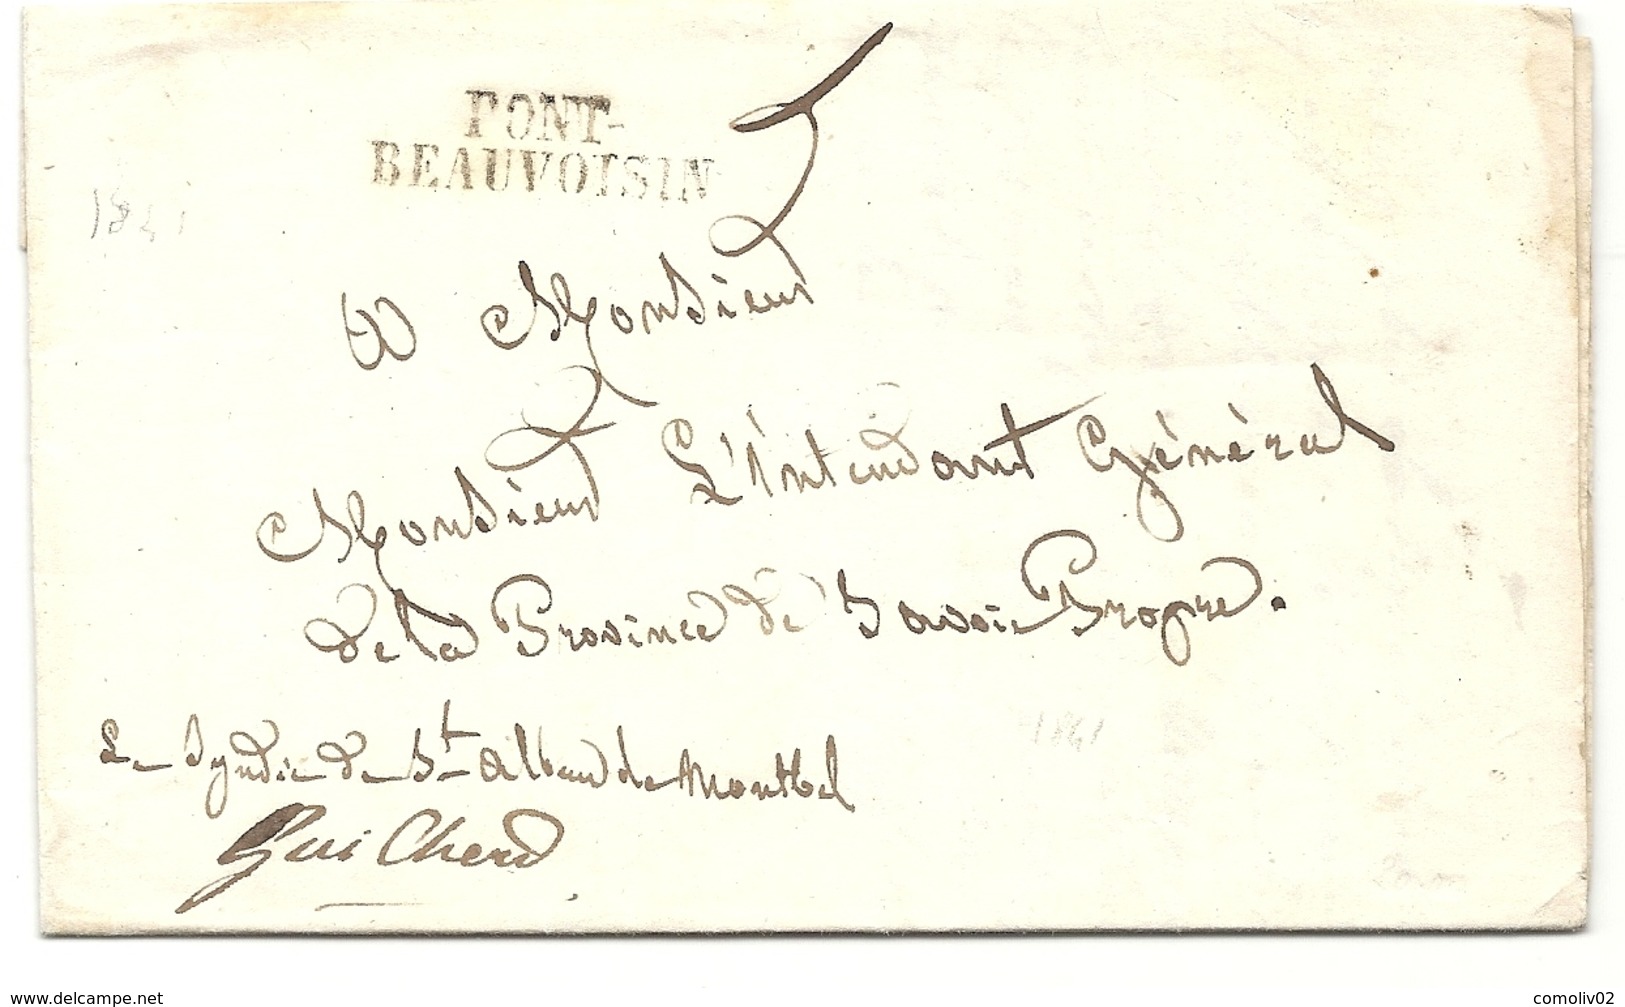 PONT-
BEAUVOISIN
1841
A Monsieur
Monsieur L'Intendant Général
de la Province de Savoie Propre.
1841
Le Syndic de St Alban de Montbel
Guicherd
www.delcampe.net
comoliv02